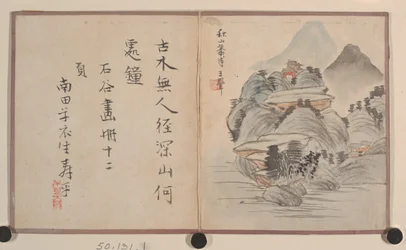 秋山蕭寺王翬
古木無人徑深山何
處鐘
石谷畫冊十二
頁
南田草衣生壽平
50.131.1